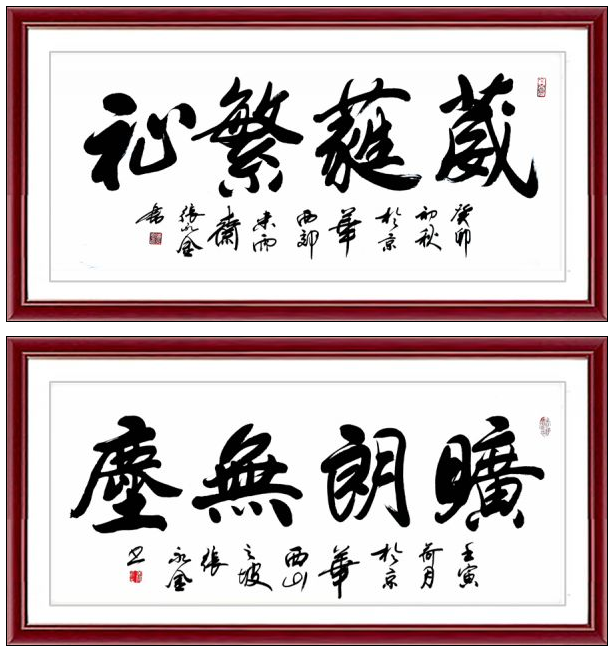 葳蕤繁祉
癸卯初秋於京華西郊未雨齋張永金書
曠朗無塵
壬寅荷月於京華西山之坡張永金